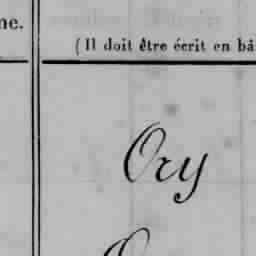 ne.
(Il doit être écrit en bâ
Ory